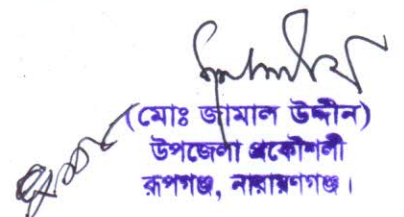 (মোঃ জামাল উদ্দীন)
উপজেলা প্রকৌশলী
রূপগঞ্জ, নারায়ণগঞ্জ।